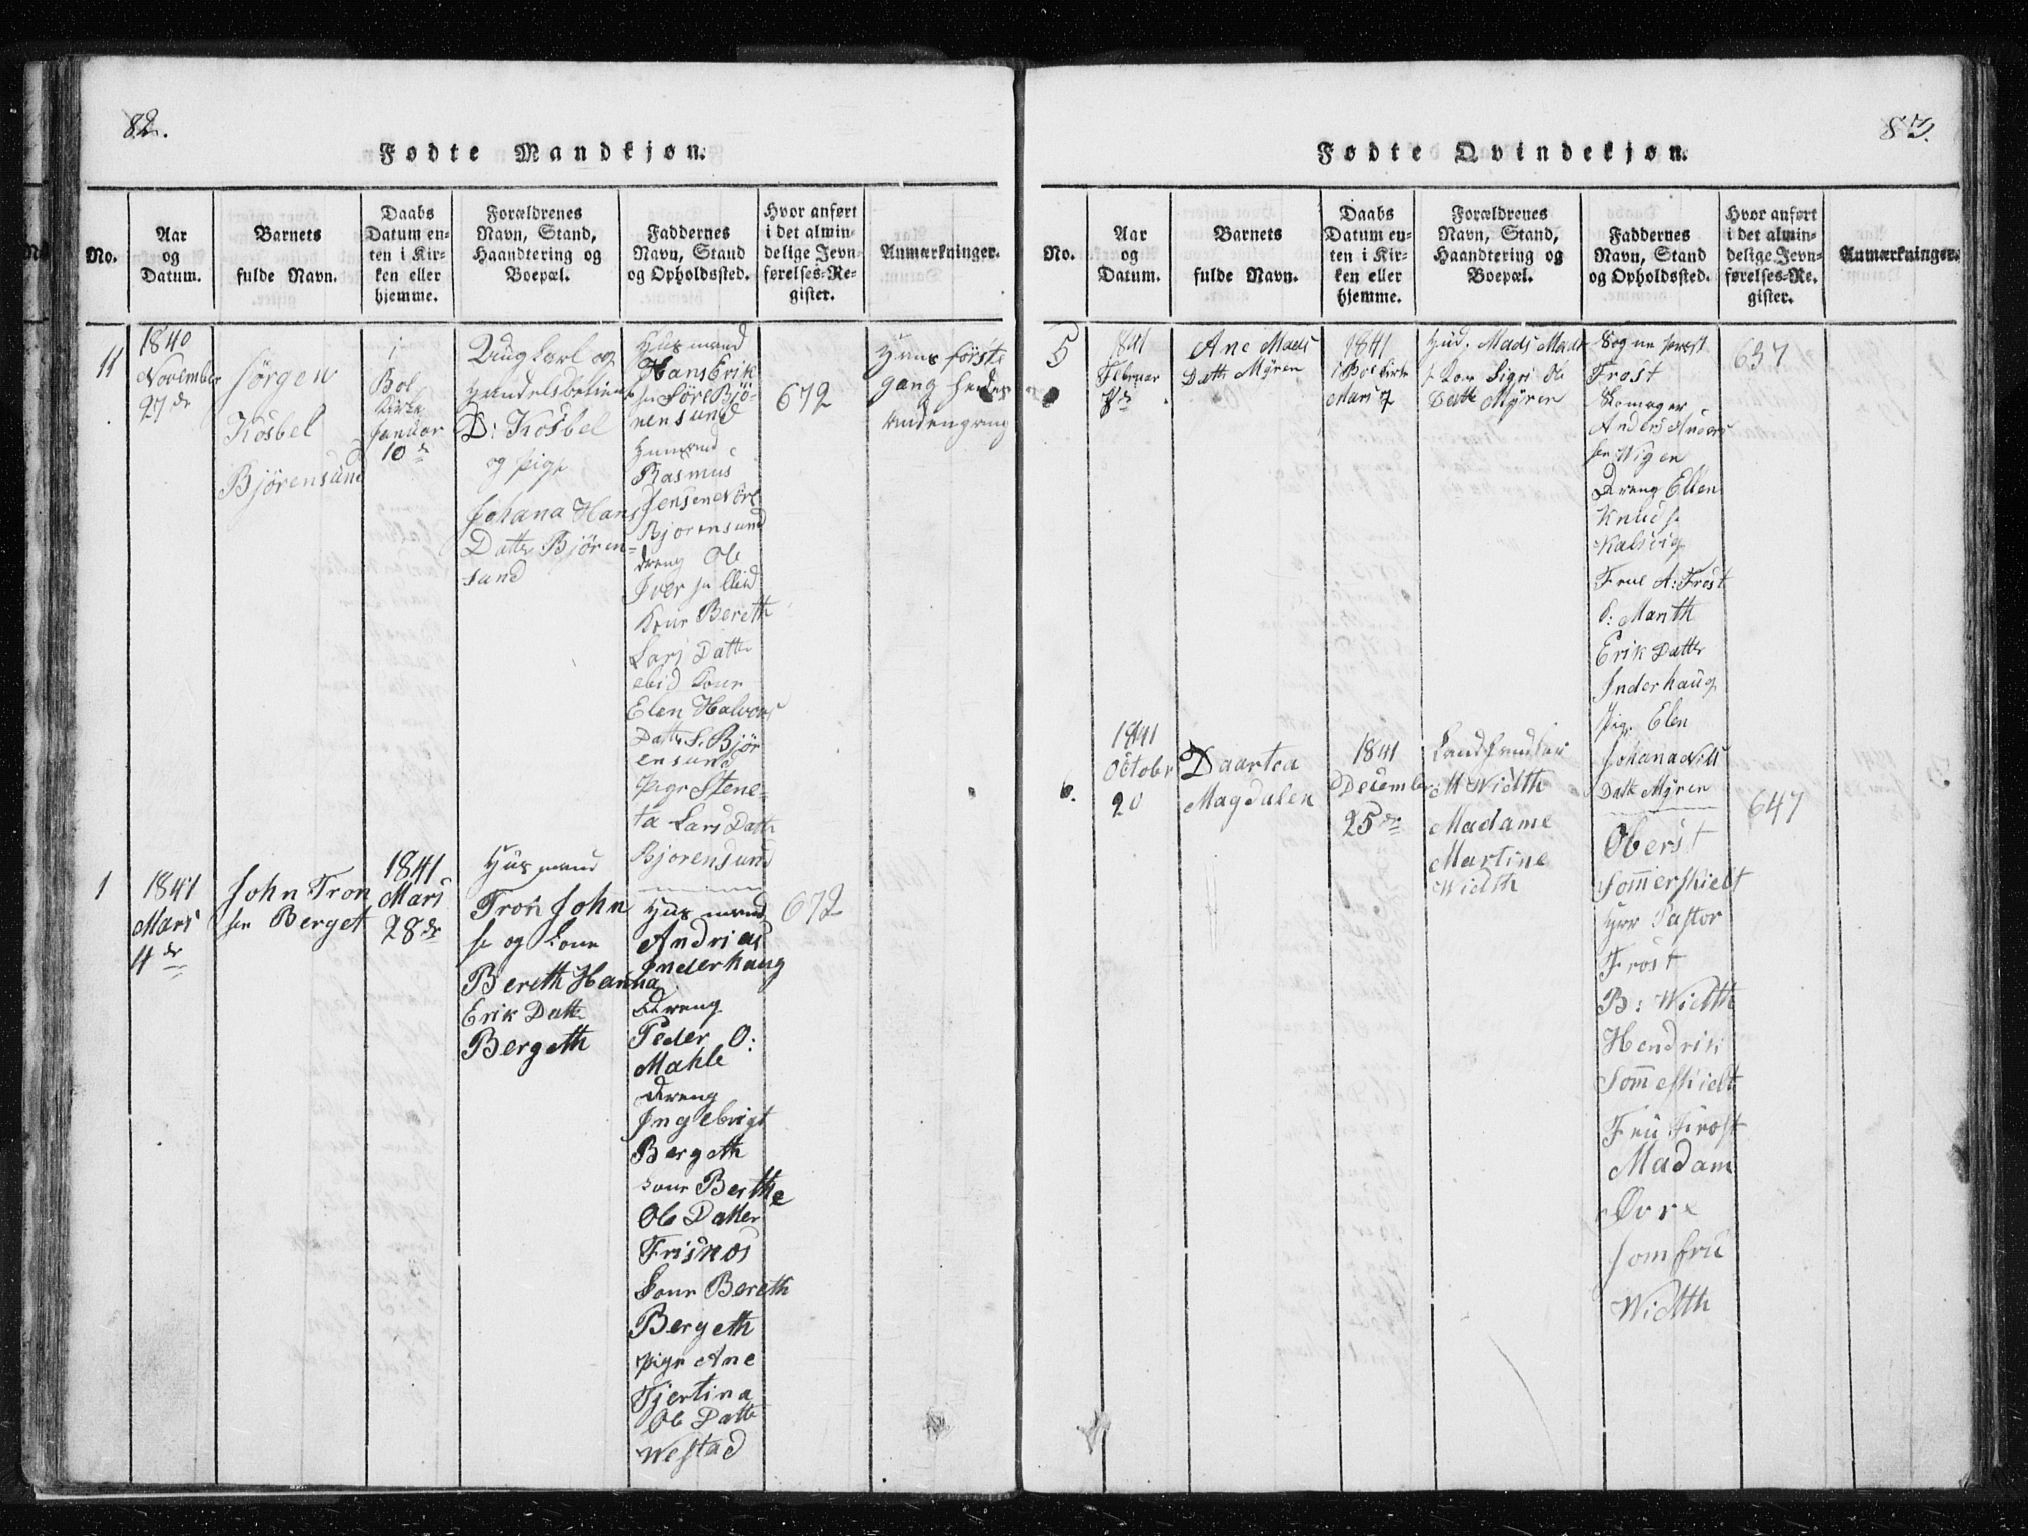 82.
Fødte Mandkjøn.
No.
Aar
og
Datum.
Barnets
fulde Navn.
Daabs
Datum en-
ten i Kir-
ken eller
hjemme.
Forældrenes
Navn, Stand,
Haandtering og
Boepæl.
Faddernes
Navn, Stand
og Opholdssted.
Hvor anført
i det almin-
delige Jevn-
førelses-Re-
gister.
Anmærkninger.
11
1840
November
27 de
Jørgen
Kosbel
Bjørensund
i
Boe
Kirke
Januar
10 de
Ung Karl og
Handelsbetient
D: Kosbel
og pige
Johana Hans
Datter Bjøren-
sund
Husmand
Hans Erik
sen Søre Bjø-
rensund
Husmand
Rasmus
Jensen Nörl
Bjorensund
dreng Ole
Iver sen ibid
Kone Bereth
Lars Datter
ebid Kone
Elen Halvors
Datter S. Bjør
ensund
Pige Stene-
ta Lars Datter
Bjorensund
672
Hans første
gang hendes
anden gang
1
1841
Mars
4 de
John Tron
sen Berget
1841
Mars
28 de
Husmand
Tron John
sen og Kone
Bereth Hanna
Erik Datter
Bergeth
Husmand
Andrias
Inderhaug
Dreng
Peder O:
Mahle
Dreng
Ingebrigt
Bergeth
Kone Berthe
Ole Datter
Frisnes
Kone Bereth
Bergeth
pige Ane
Tjertina
Ole Datter
Westad
672
83.
Fødte Qvindekjøn.
No.
Aar
og
Datum.
Barnets
fulde Navn.
Daabs
Datum en-
ten i Kir-
ken eller
hjemme.
Forældrenes
Navn, Stand,
Haandtering og
Boepæl.
Faddernes
Navn, Stand
og Opholdssted.
Hvor anført
i det almin-
delige Jevn-
førelses-Re-
gister.
Anmærkninger.
5
1841
Februar
Ane Mads
Datter Mÿren
1841
i Boe Kirke
Mars 7
Hud. Mads Mads
s Kone Sigri Ole
Datter Mÿren
Sogne prest
Frost
Skomager
Anders Anders
sen Wigen
Dreng Ellen
Knud s
Kalsvig
Frue A: Frost
K: Marith
Erik Datter
Inderhaug
Pige Elen
Johana Nils
Datter Mÿren
637
6.
1841
October
20
Daartea
Magdalen
1841
Desember
25 de
Landhandler
M Width
Madame
Martine
Width
Oberst
Sommerskielt
Herr Pastor
Frost
B: Width
Hendrik
Sommeskielt
Fru Frost
Madam
Øvre
Jomfru
Width
647